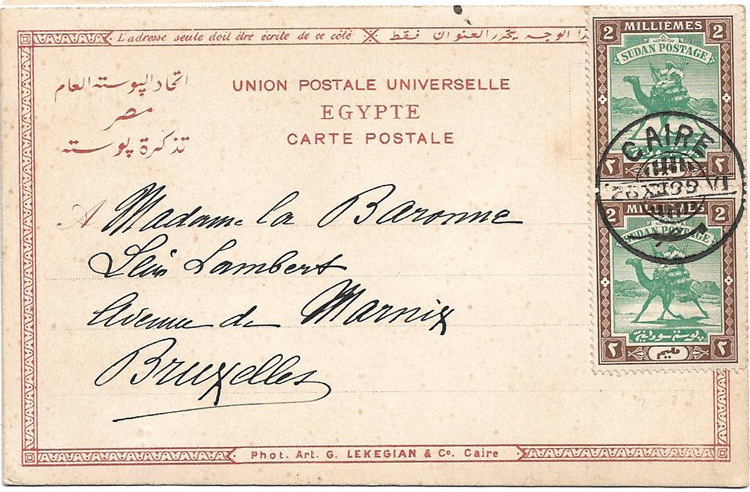 L'adresse seule doit être écrite de ce côté هذا الوجه يتحرر العنوان فقط
UNION POSTALE UNIVERSELLE
EGYPTE
CARTE POSTALE
اتحاد البوستة العام
مصر
تذكرة بوستة
2 MILLIÈMES 2
SUDAN POSTAGE
٢ ٢
CAIRE
MILLIÈMES 2
SUDAN POSTAGE
بوستة سودانية
٢ مليم ٢
A Madame la Baronne
Léon Lambert
Avenue de Marnix
Bruxelles
Phot. Art. G. LEKEGIAN & Co. Caire